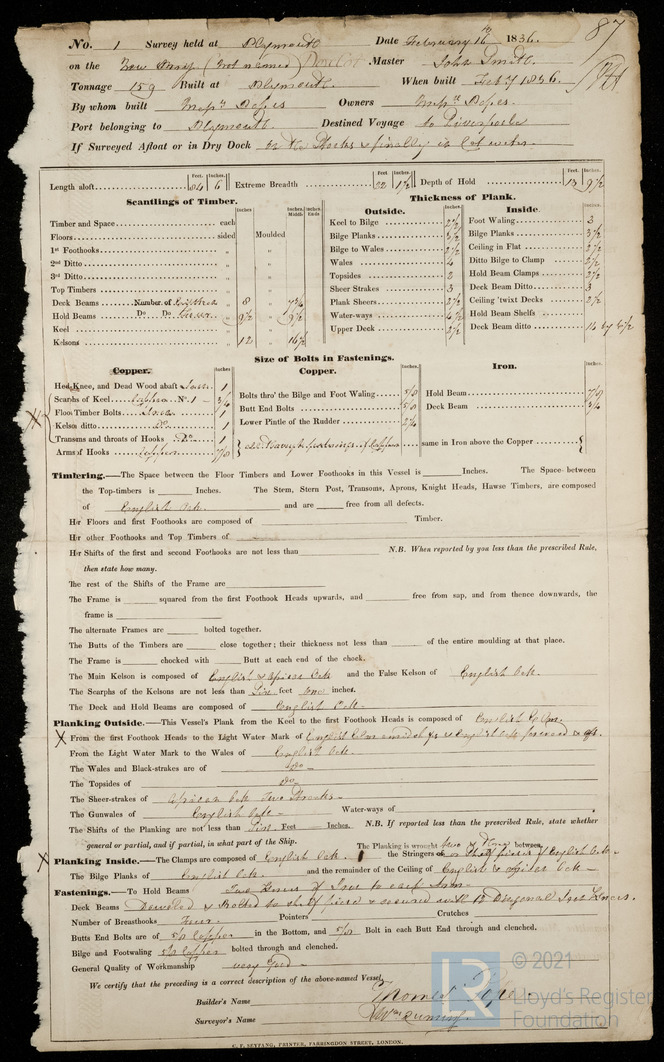 87
No. 1 Survey held at Plymouth Date February 16th 1836.
on the New Brig (not named) Master John Smith.
Tonnage 159 Built at Plymouth. When built Feby 1836.
By whom built Messrs Popes Owners Messrs Popes.
Port belonging to Plymouth. Destined Voyage to Liverpool
If Surveyed Afloat or in Dry Dock on the Stocks & finally
Feet. Inches. Feet. Inches. Feet. Inches.
Length aloft 84 6 Extreme Breadth 22 1½ Depth of Hold 13 9½
Scantlings of Timber. Thickness of Plank.
Outside. Inside.
Inches Inches. Middle Inches. Ends Inches Inches.
Timber and Space each
Floors sided Moulded
1st Foothooks "
2nd Ditto "
3rd Ditto "
Top Timbers "
Deck Beams Number of 8 7¾
Hold Beams Do Do Four 9½ 9½
Keel
Kelsons 12 16½
Keel to Bilge 2½
Bilge Planks 3½
Bilge to Wales 2½
Wales 4
Topsides 2
Sheer Strakes 3
Plank Sheers 2½
Water-ways 4½
Upper Deck 2½
Foot Waling 3
Bilge Planks 3½
Ceiling in Flat 2½
Ditto Bilge to Clamp 2½
Hold Beam Clamps 2½
Deck Beam Ditto 3
Ceiling 'twixt Decks 2½
Hold Beam Shelfs
Deck Beam ditto
Size of Bolts in Fastenings.
Copper. Copper. Iron.
Inches Inches Inches
Heel-Knee, and Dead Wood abaft 1
Scarphs of Keel Copper No. 1 3/4
Floor Timber Bolts Iron 1
Kelson ditto Do 1
Transoms and throats of Hooks Do 1
Arms of Hooks Copper 7/8
Bolts thro' the Bilge and Foot Waling 5/8
Butt End Bolts 5/8
Lower Pintle of the Rudder 2¼
same in Iron above the Copper
Hold Beam 7/8
Deck Beam 3/4
Timbering.—The Space between the Floor Timbers and Lower Foothooks in this Vessel is Inches. The Space between
the Top-timbers is Inches. The Stem, Stern Post, Transoms, Aprons, Knight Heads, Hawse Timbers, are composed
of English Oak. and are free from all defects.
Her Floors and first Foothooks are composed of Timber.
Her other Foothooks and Top Timbers of
Her Shifts of the first and second Foothooks are not less than N.B. When reported by you less than the prescribed Rule,
then state how many.
The rest of the Shifts of the Frame are
The Frame is squared from the first Foothook Heads upwards, and free from sap, and from thence downwards, the
frame is
The alternate Frames are bolted together.
The Butts of the Timbers are close together; their thickness not less than of the entire moulding at that place.
The Frame is chocked with Butt at each end of the chock.
The Main Kelson is composed of English & African Oak and the False Kelson of English Oak.
The Scarphs of the Kelsons are not less than Five feet one inches.
The Deck and Hold Beams are composed of English Oak.
Planking Outside.—This Vessel's Plank from the Keel to the first Foothook Heads is composed of English Elm.
X From the first Foothook Heads to the Light Water Mark of English Elm amidships & English Oak forward & aft.
From the Light Water Mark to the Wales of English Oak.
The Wales and Black-strakes are of Do
The Topsides of Do
The Sheer-strakes of African Oak Two Strakes
The Gunwales of English Oak Water-ways of
The Shifts of the Planking are not less than Five Feet Inches. N.B. If reported less than the prescribed Rule, state whether
general or partial, and if partial, in what part of the Ship. The Planking is wrought two & three between.
X Planking Inside.—The Clamps are composed of English Oak. the Stringers or Shelf pieces of English Oak
The Bilge Planks of English Oak and the remainder of the Ceiling of English & African Oak
Fastenings.—To Hold Beams Two Knees of Iron to each Arm
Deck Beams Dowelled & bolted to shelf piece & secured with 12 Diagonal Iron Knees.
Number of Breasthooks Four Pointers Crutches
Butts End Bolts are of 5/8 Copper in the Bottom, and 5/8 Bolt in each Butt End through and clenched.
Bilge and Footwaling 5/8 Copper bolted through and clenched.
General Quality of Workmanship very good
We certify that the preceding is a correct description of the above-named Vessel,
Builder's Name Thomas Pope
Surveyor's Name
C. F. SEYFANG, PRINTER, FARRINGDON STREET, LONDON.
LR
© 2021
Lloyd's Register
Foundation